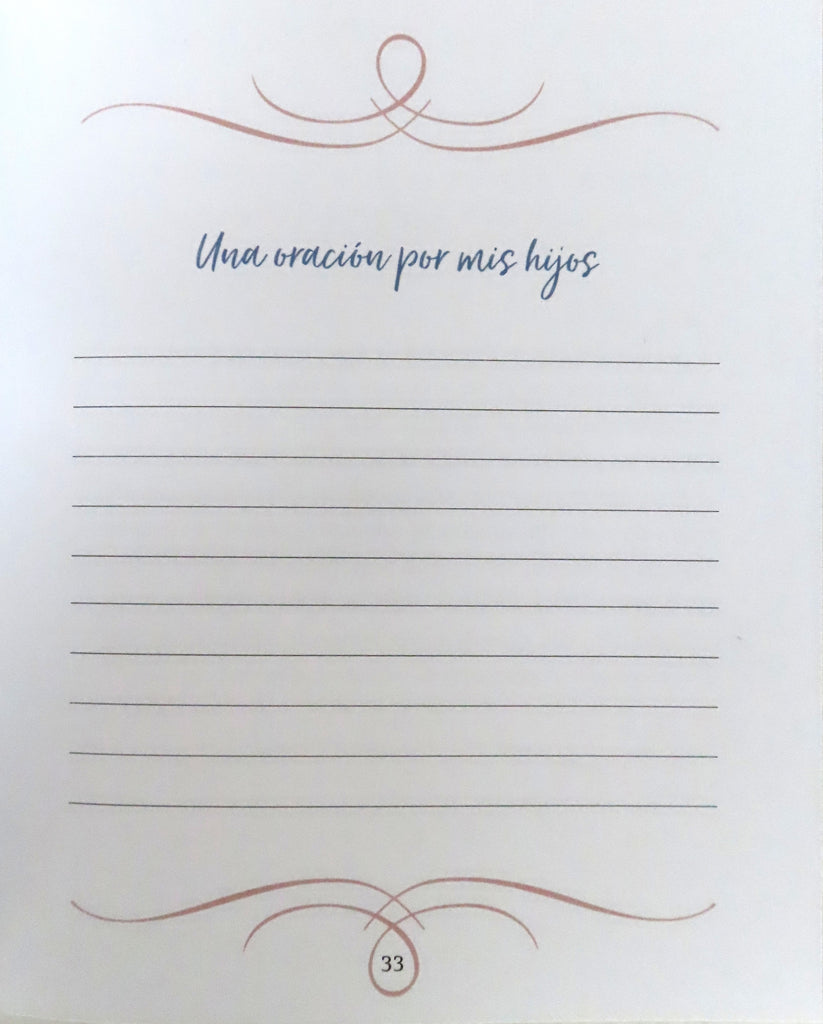 Una oración por mis hijos
33